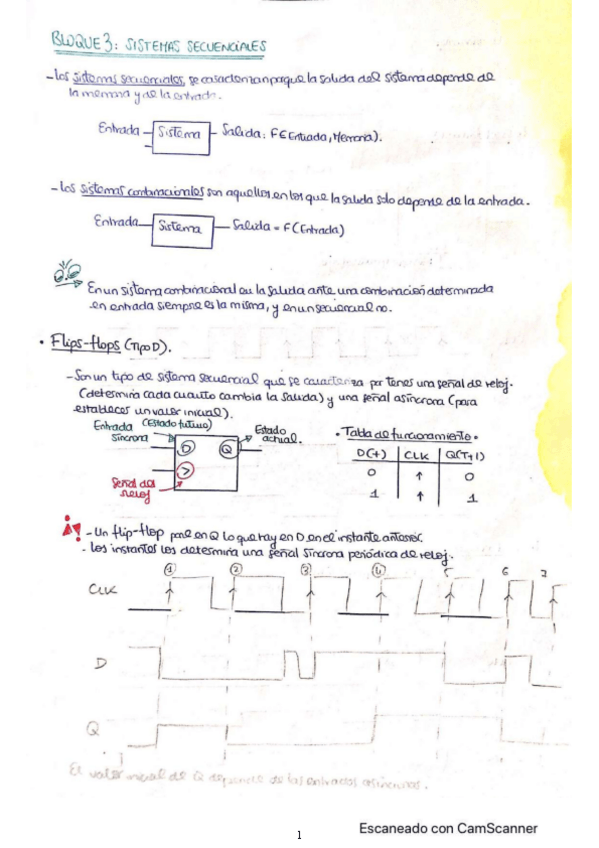 BLOQUE 3: SISTEMAS SECUENCIALES
- Los sistemas secuenciales, se caracterizan porque la salida del sistema depende de
la memoria y de la entrada.
Entrada Sistema Salida: F(Entrada, Memoria).
- Los sistemas combinacionales son aquellos en los que la salida solo depende de la entrada.
Entrada Sistema Salida = F(Entrada)
En un sistema combinacional la salida ante una combinación determinada
en entrada siempre es la misma, y en un secuencial no.
• Flips-flops (Tipo D).
- Son un tipo de sistema secuencial que se caracteriza por tener una señal de reloj.
(determina cada cuanto cambia la salida) y una señal asíncrona (para
establecer un valor inicial).
Entrada (Estado futuro)
síncrona
D Q
Estado
actual.
>
Señal del
reloj
• Tabla de funcionamiento •
D(t) CLK Q(T+1)
0 ↑ 0
1 ↑ 1
¡! - Un flip-flop pone en Q lo que hay en D en el instante anterior.
- Los instantes los determina una señal síncrona periódica de reloj.
1 2 3 4 5 6 7
CLK
D
Q
El valor inicial de Q depende de las entradas asíncronas.
1
Escaneado con CamScanner